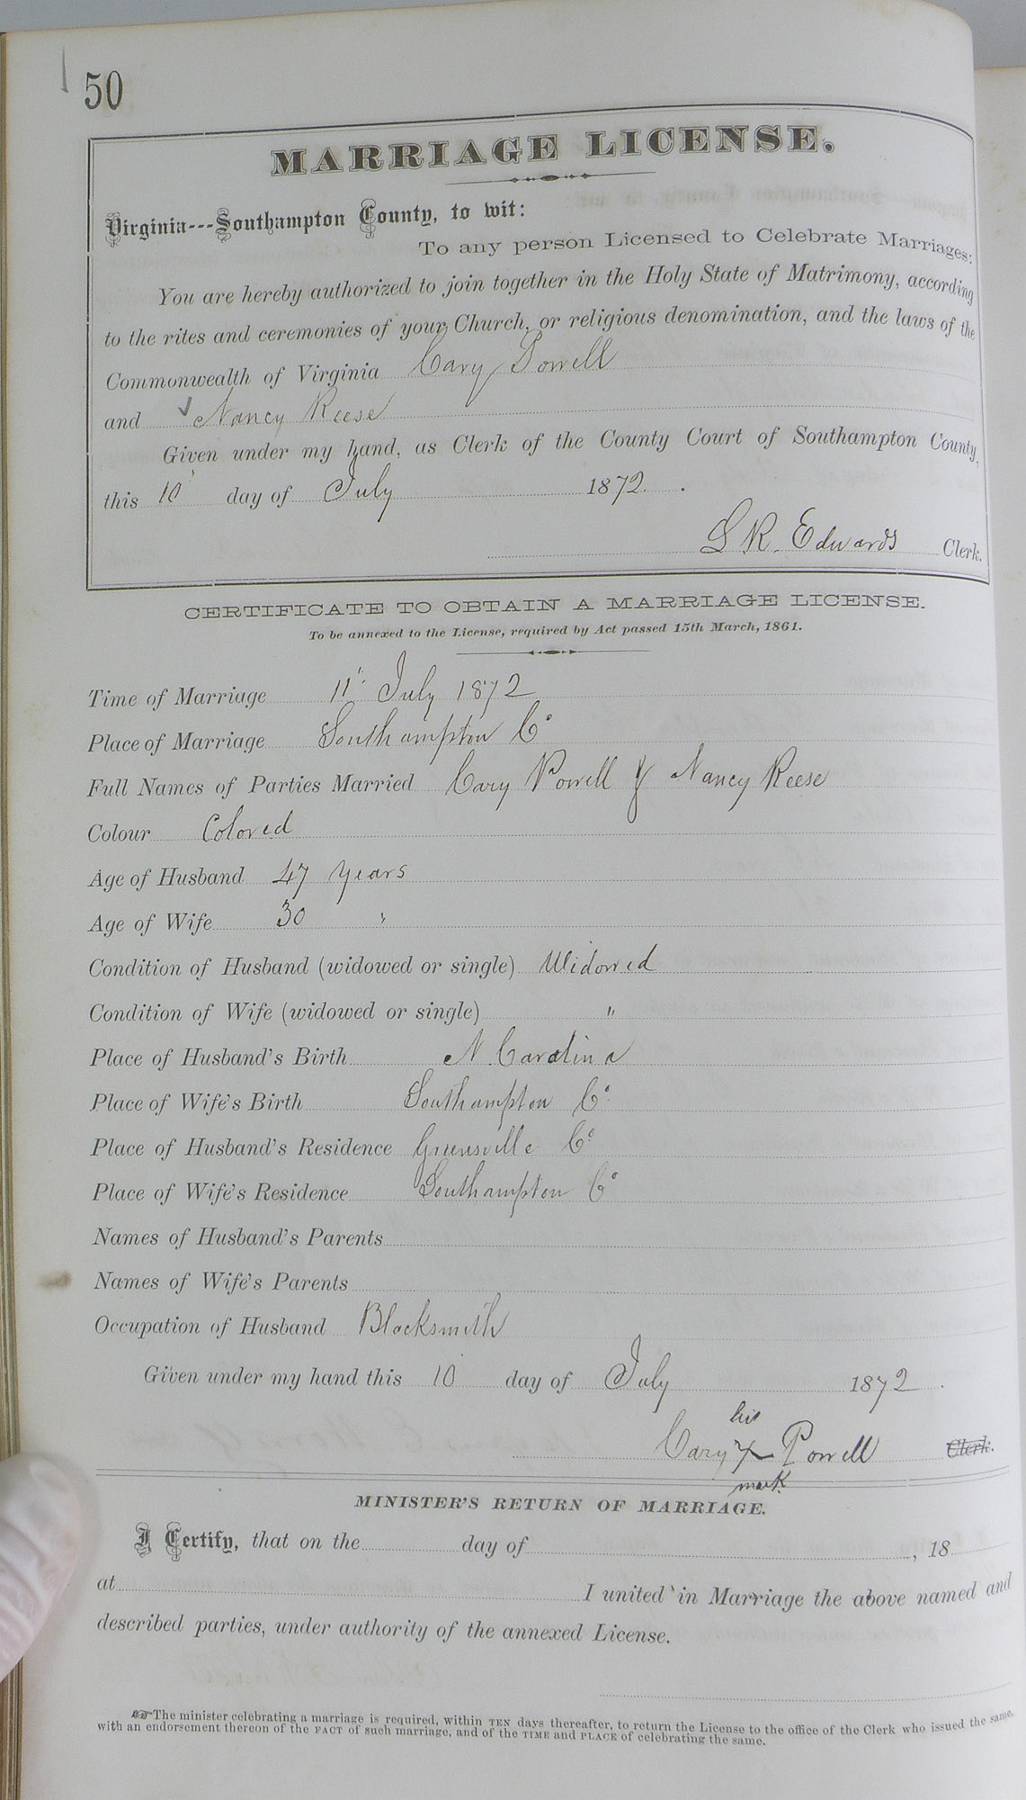 50
MARRIAGE LICENSE.
Virginia---Southampton County, to wit:
To any person Licensed to Celebrate Marriages:
You are hereby authorized to join together in the Holy State of Matrimony, according
to the rites and ceremonies of your Church, or religious denomination, and the laws of the
Commonwealth of Virginia Cary Powell
and Nancy Reese
Given under my hand, as Clerk of the County Court of Southampton County,
this 10 day of July 1872.
S R. Edwards Clerk.
CERTIFICATE TO OBTAIN A MARRIAGE LICENSE.
To be annexed to the License, required by Act passed 15th March, 1861.
Time of Marriage 11" July 1872
Place of Marriage Southampton Co
Full Names of Parties Married Cary Powell & Nancy Reese
Colour Colored
Age of Husband 47 years
Age of Wife 30 "
Condition of Husband (widowed or single) Widowed
Condition of Wife (widowed or single) "
Place of Husband's Birth N. Carolina
Place of Wife's Birth Southampton Co
Place of Husband's Residence Greensville Co
Place of Wife's Residence Southampton Co
Names of Husband's Parents
Names of Wife's Parents
Occupation of Husband Blacksmith
Given under my hand this 10 day of July 1872.
his
Cary X Powell Clerk.
mark
MINISTER'S RETURN OF MARRIAGE.
I Certify, that on the day of , 18
at I united in Marriage the above named and
described parties, under authority of the annexed License.
☞The minister celebrating a marriage is required, within TEN days thereafter, to return the License to the office of the Clerk who issued the same,
with an endorsement thereon of the FACT of such marriage, and of the TIME and PLACE of celebrating the same.